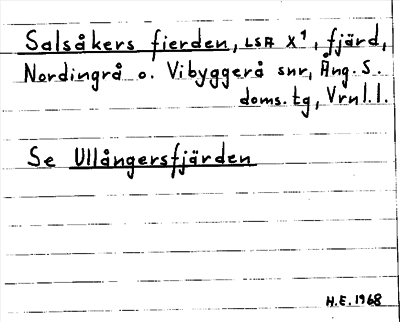 Salsåkers fierden, LSA X¹, fjärd,
Nordingrå o. Vibyggerå snr, Ång. S.
doms. tg, Vrnl. l.
Se Ullångersfjärden
H.E. 1968